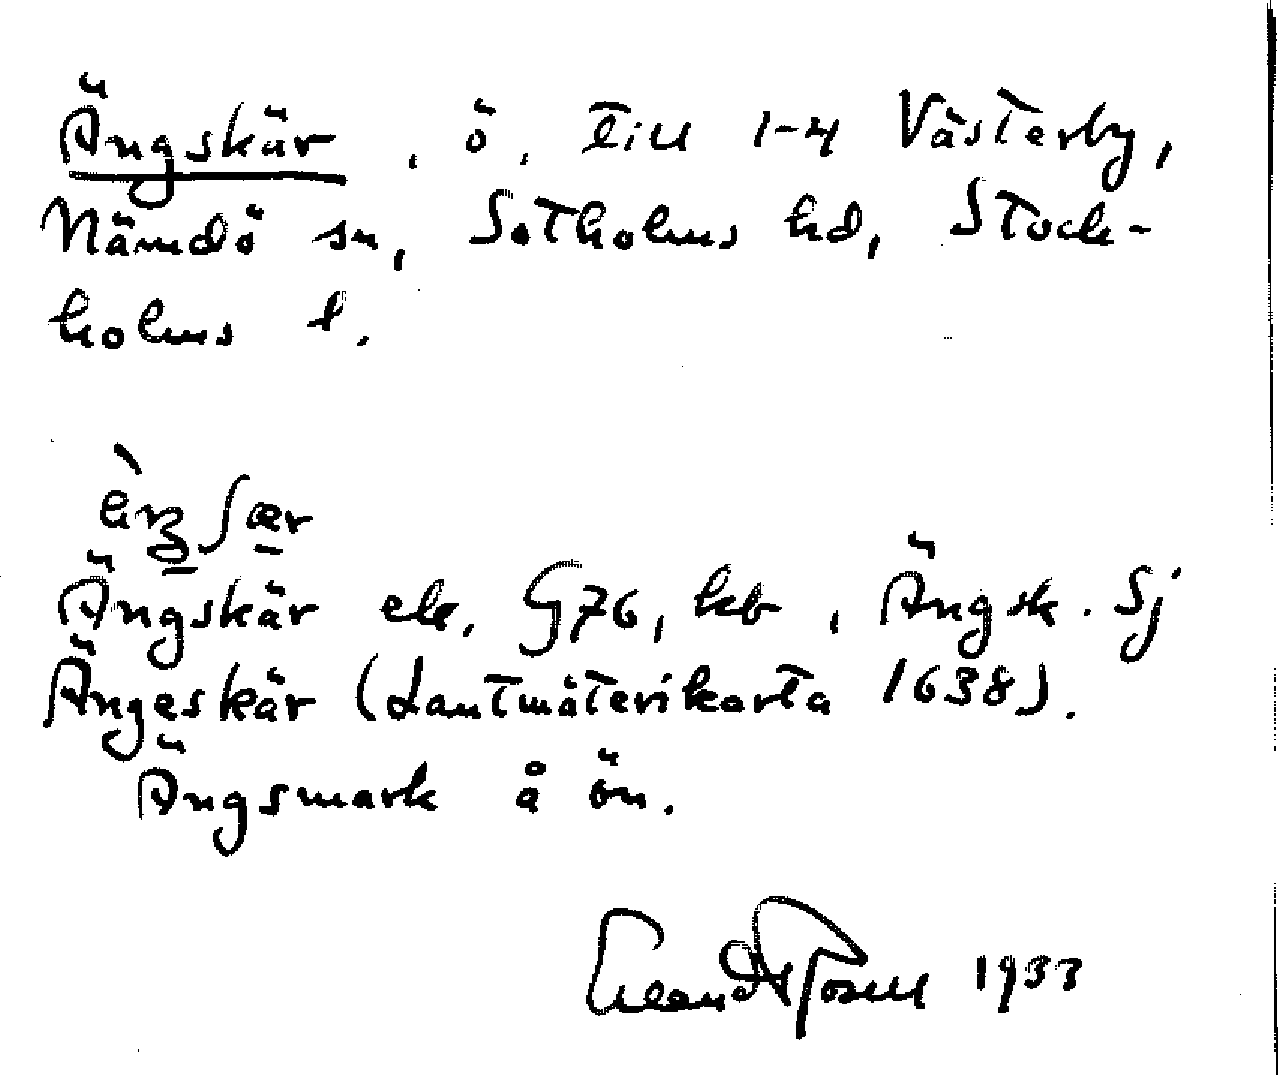 Ängskär, ö, till 1-4 Västerby,
Nämdö sn, Sotholms hd, Stock-
holms l.
Ängskär ek, G76, kb, Ängsk. Sj
Ängeskär (Lantmäterikarta 1638).
Ängsmark å ön.
Erland Rosell 1933